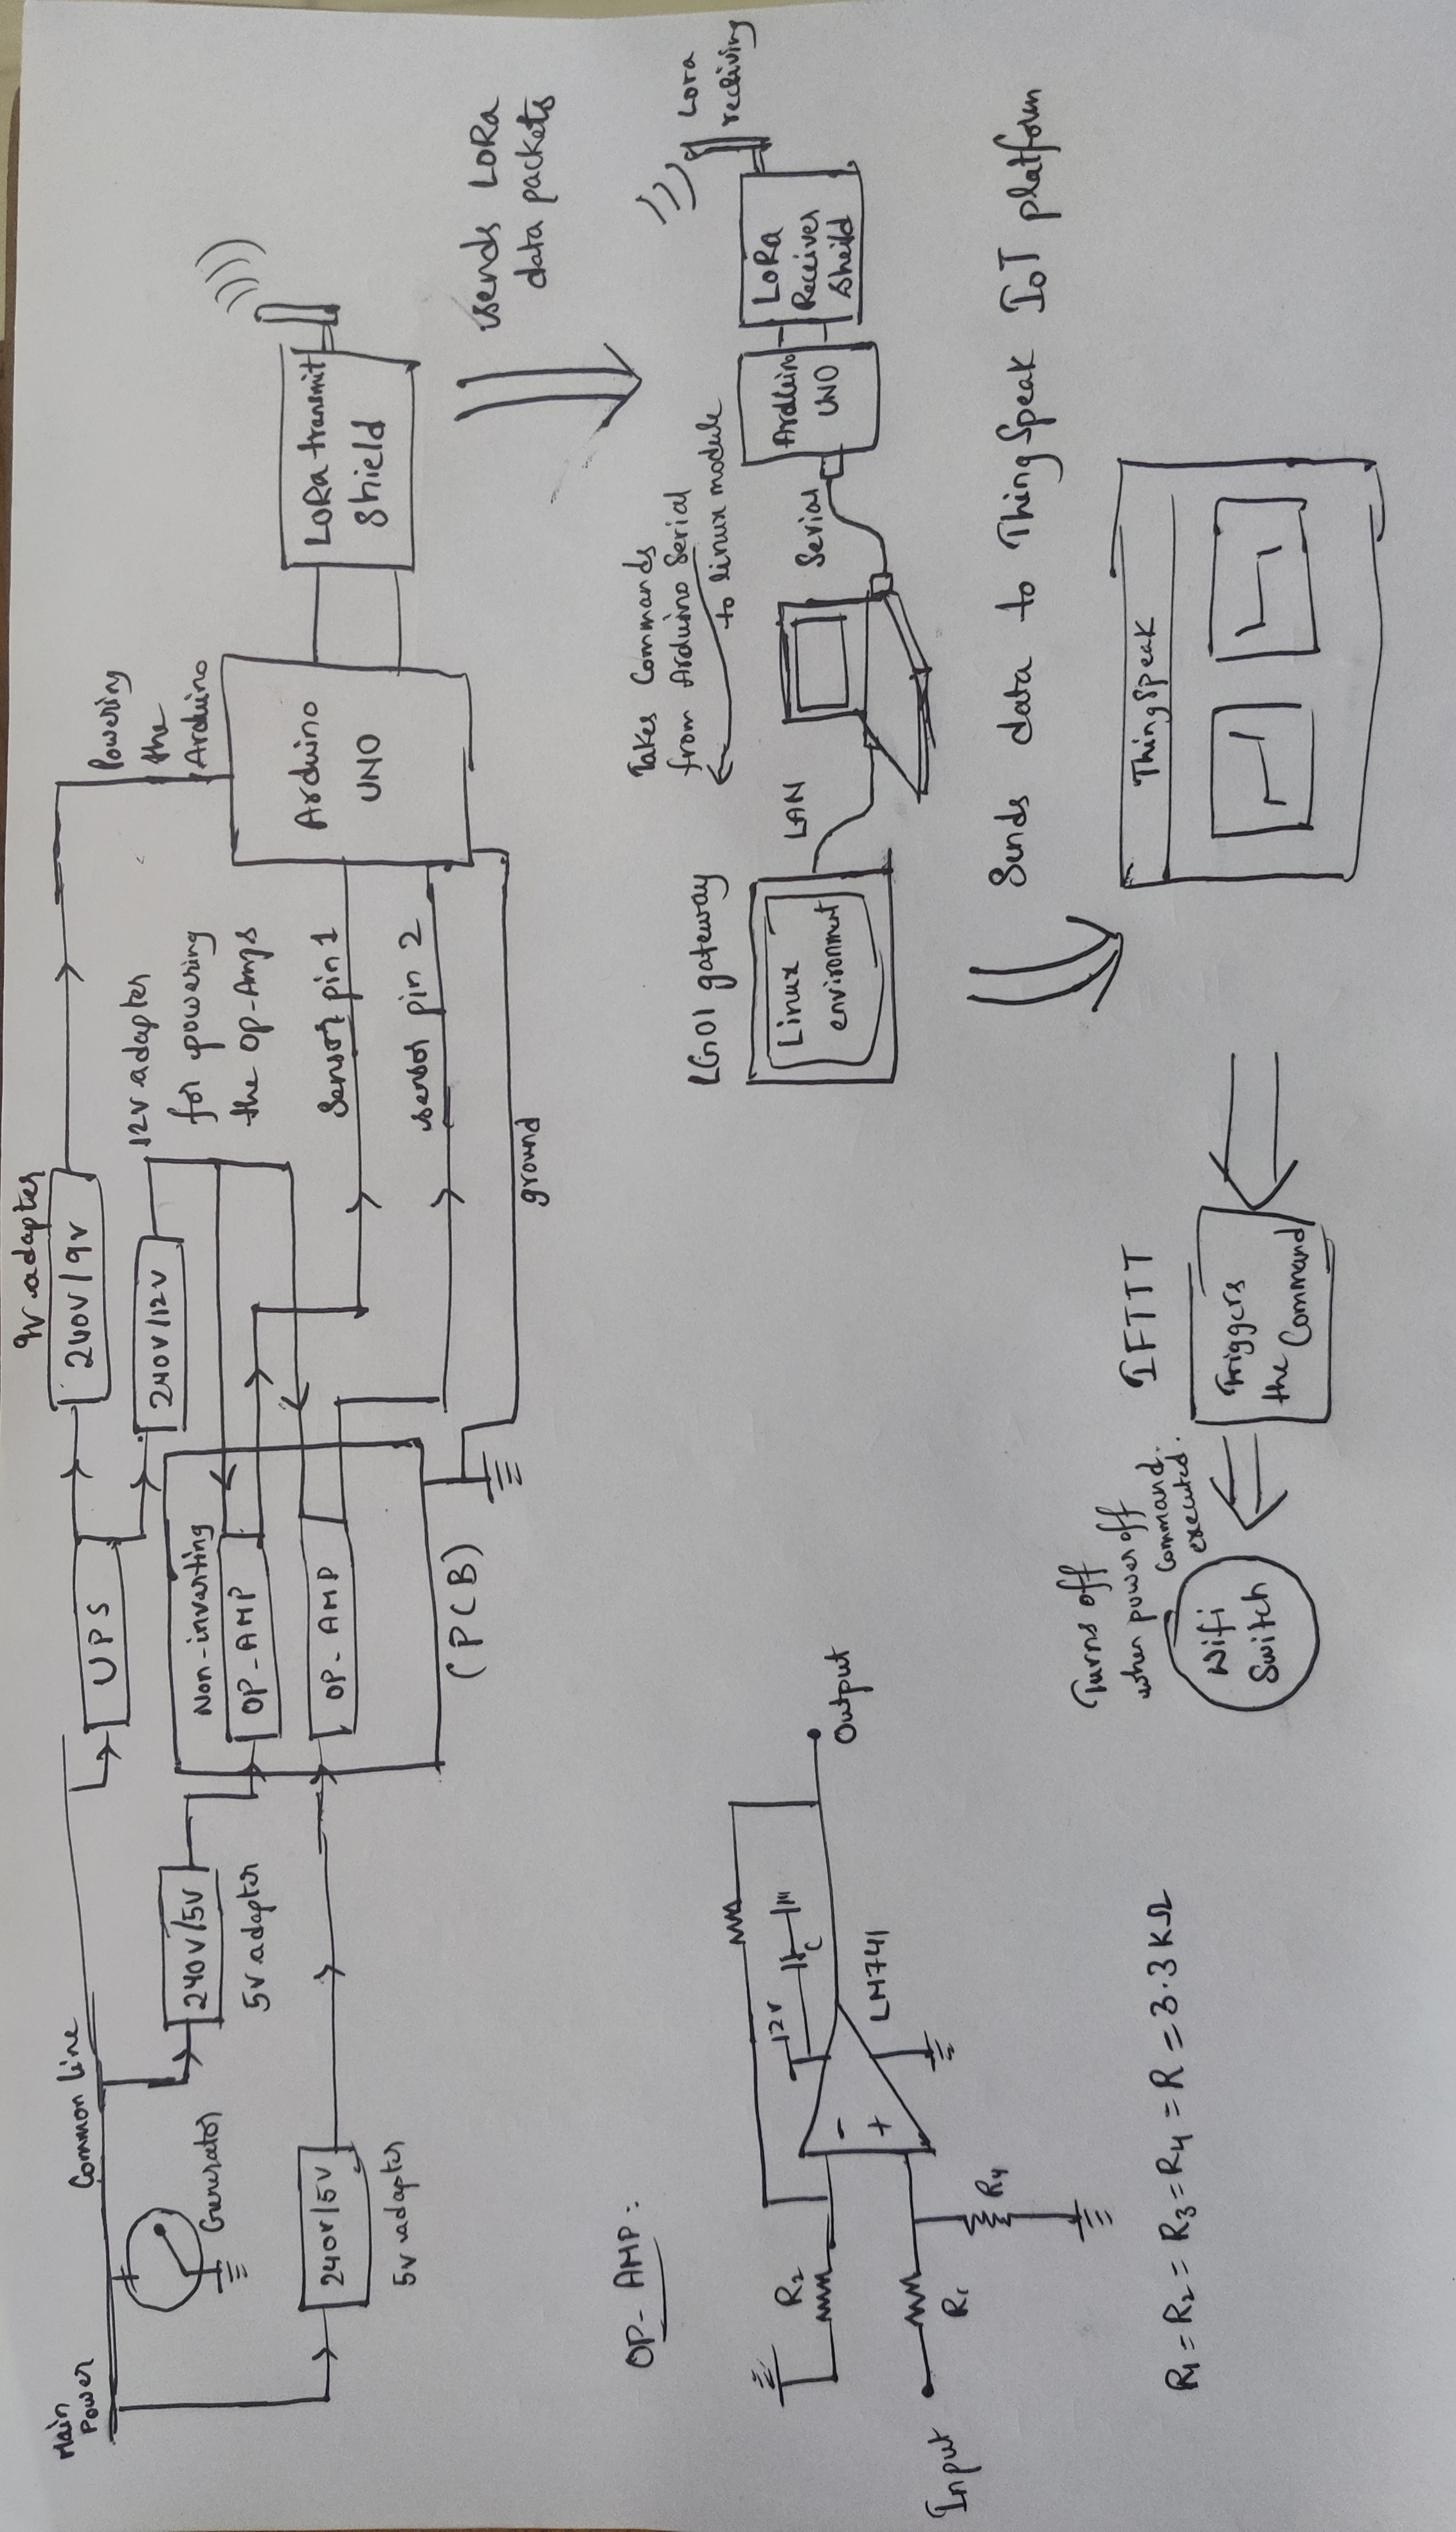 Main
Power
Common line
Generator
240V/5V
5V adapter
240V/5V
5V adapter
UPS
9V adapter
240V/9V
240V/12V
12V adapter
for powering
the OP-Amps
Non-inverting
OP-AMP
OP-AMP
(PCB)
ground
Sensor pin 1
sensor pin 2
Powering
the
Arduino
Arduino
UNO
LoRa transmit
Shield
sends LoRa
data packets
Lora
reciving
LoRa
Receiver
Sheild
Arduino
UNO
Serial
Takes Commands
from Arduino Serial
to linux module
LAN
LG01 gateway
Linux
environment
Sends data to ThingSpeak IoT platform
ThingSpeak
IFTTT
Triggers
the Command
Turns off
when power off
Command
executed.
Wifi
Switch
OP-AMP:
R2
12V
C
LM741
Output
R1
R4
Input
R1 = R2 = R3 = R4 = R = 3.3 KΩ